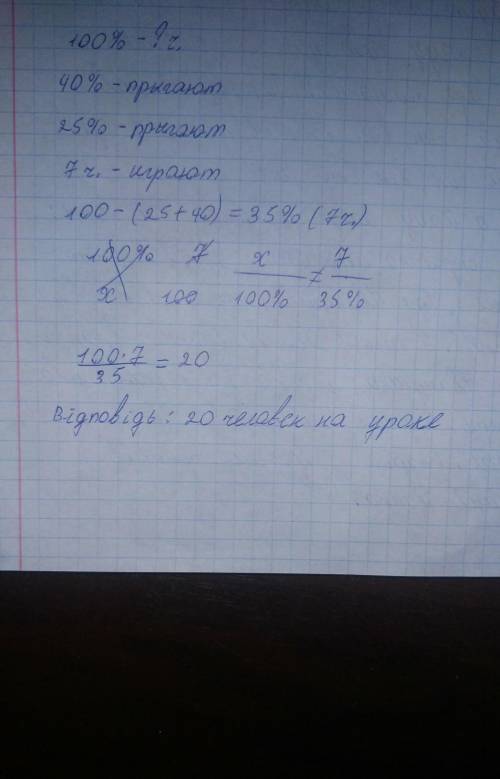 100% - ? ч.
40% - прыгают
25% - прыгают
7 ч. - играют
100 - (25 + 40) = 35% (7ч.)
100% 7 x/100% = 7/35%
x 100
100·7/35 = 20
Відповідь: 20 человек на уроке